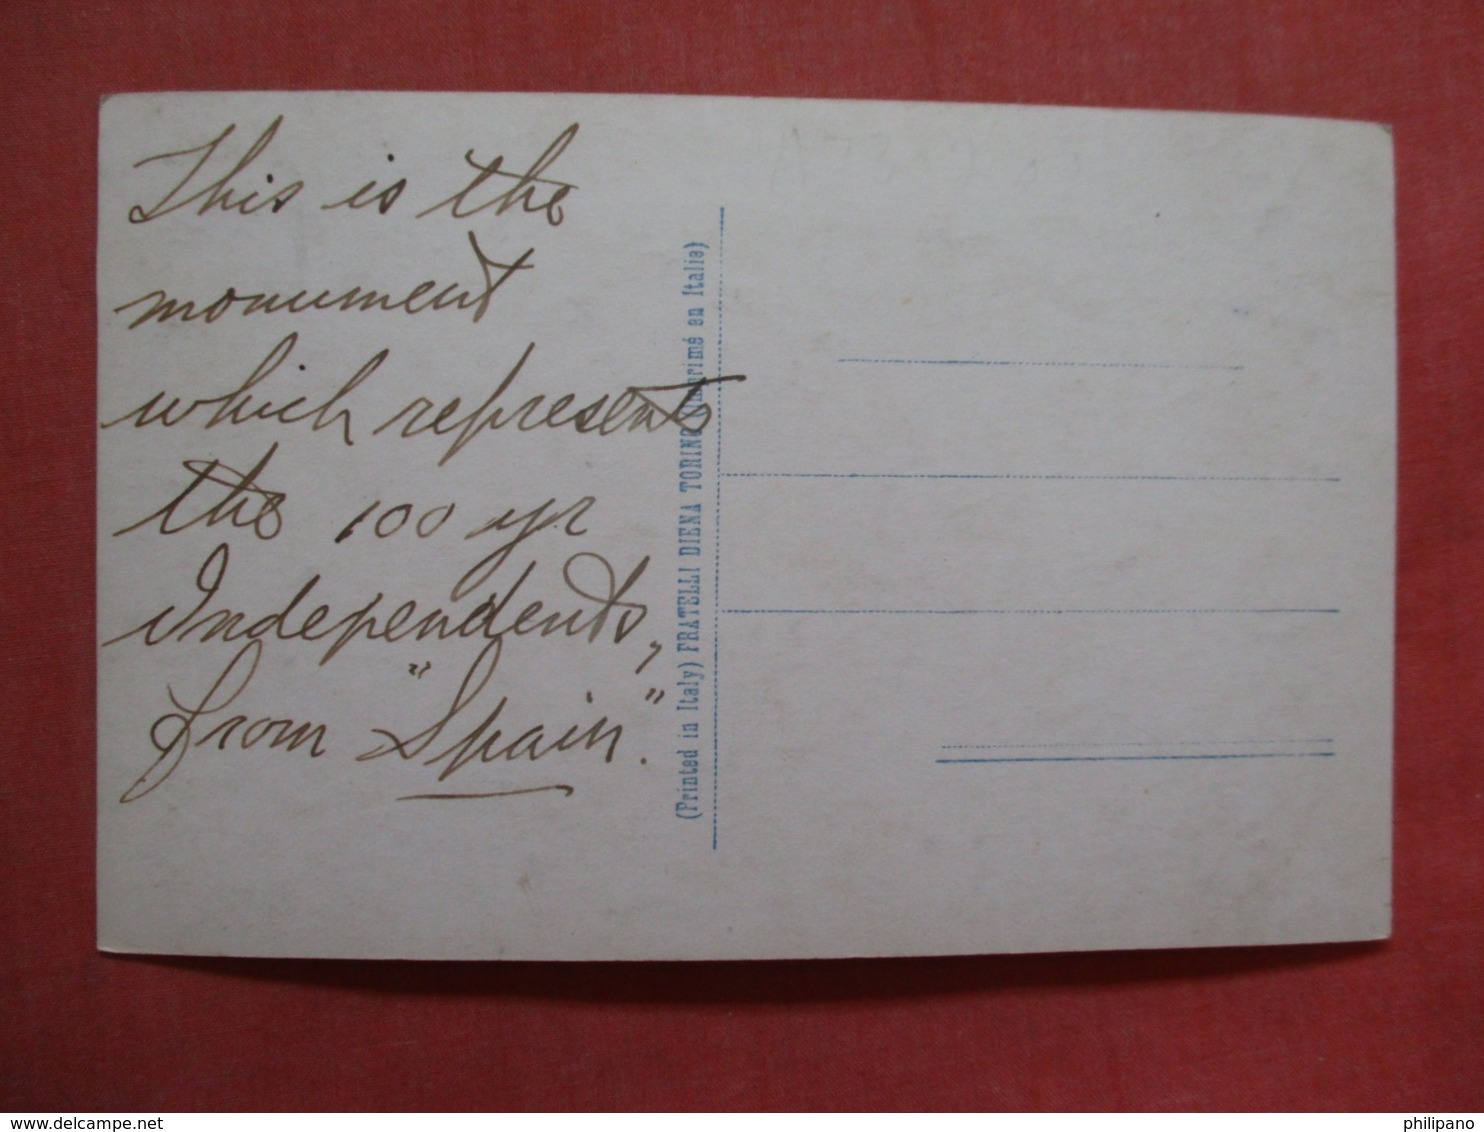 This is the
monument
which represents
the 100 yr
Independents,
from "Spain".
(Printed in Italy) FRATELLI DIENA TORINO (Imprimé en Italie)
www.delcampe.net
philipano